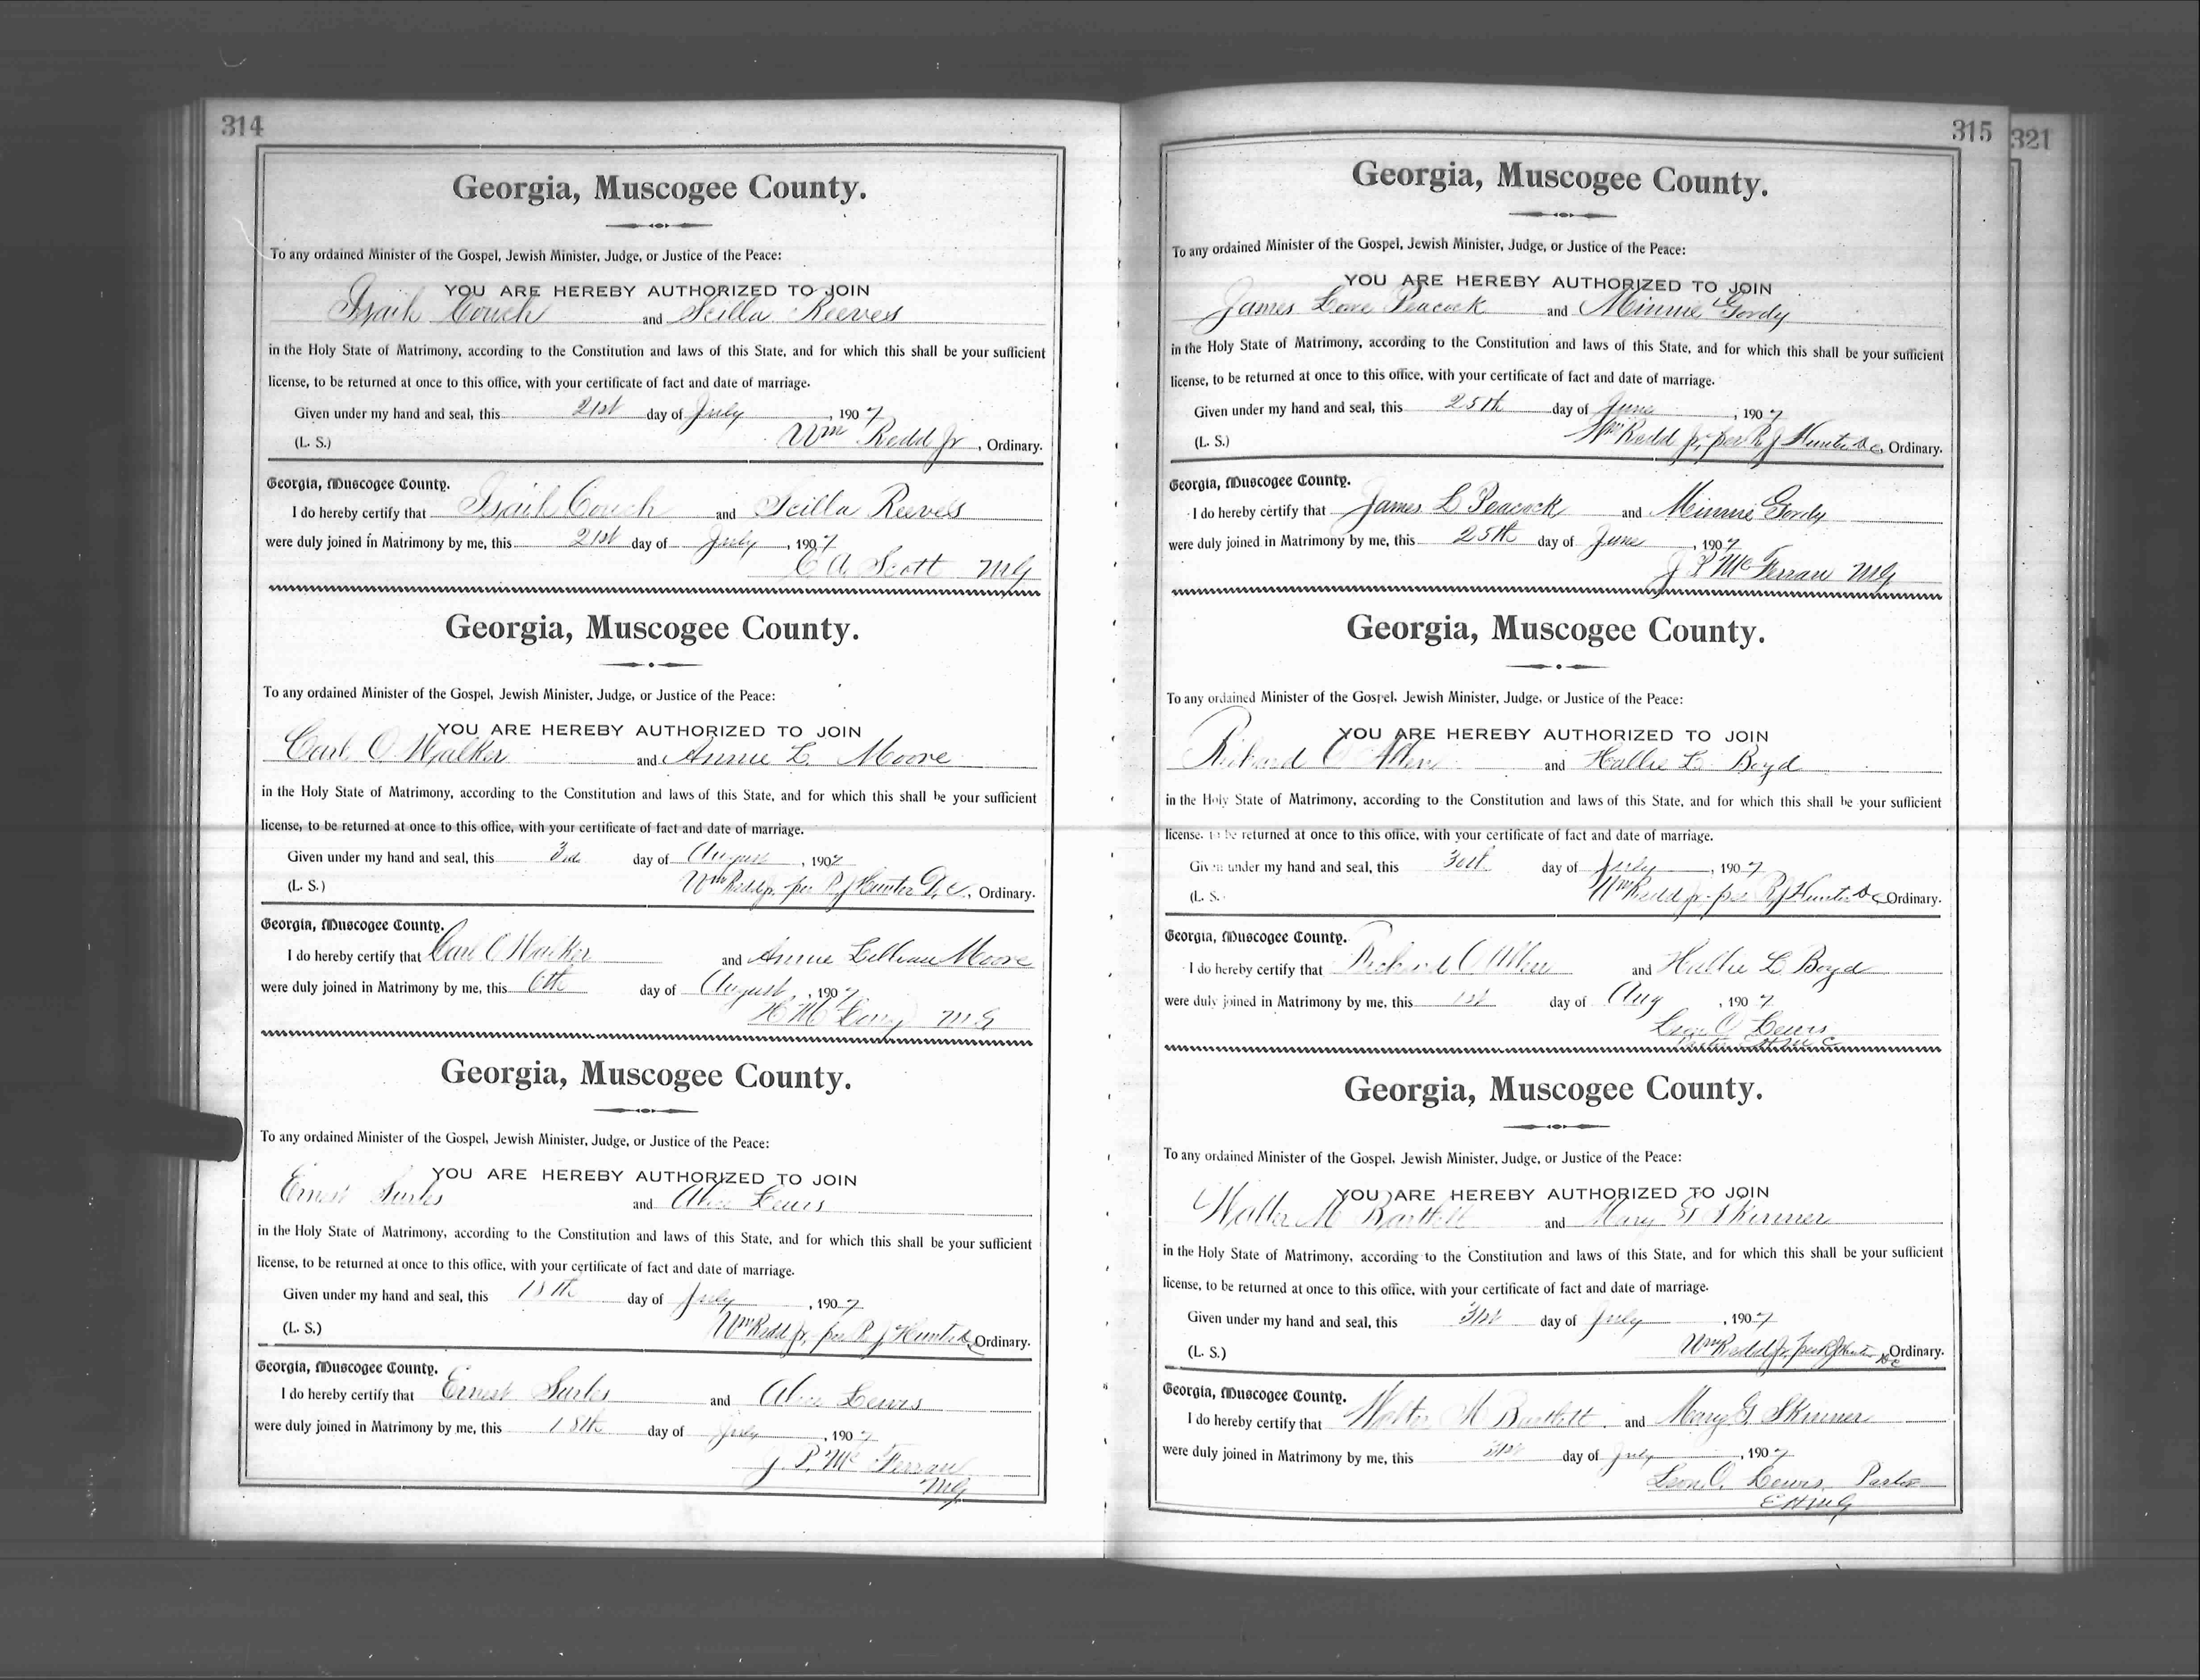 314
Georgia, Muscogee County.
To any ordained Minister of the Gospel, Jewish Minister, Judge, or Justice of the Peace:
YOU ARE HEREBY AUTHORIZED TO JOIN
Isaih Couch and Scilla Reeves
in the Holy State of Matrimony, according to the Constitution and laws of this State, and for which this shall be your sufficient
license, to be returned at once to this office, with your certificate of fact and date of marriage.
Given under my hand and seal, this 21st day of July, 1907
(L. S.) Wm Redd Jr, Ordinary.
Georgia, Muscogee County.
I do hereby certify that Isaih Couch and Scilla Reeves
were duly joined in Matrimony by me, this 21st day of July, 1907
C A Scott MG
Georgia, Muscogee County.
To any ordained Minister of the Gospel, Jewish Minister, Judge, or Justice of the Peace:
YOU ARE HEREBY AUTHORIZED TO JOIN
Carl O Walker and Annie L. Moore
in the Holy State of Matrimony, according to the Constitution and laws of this State, and for which this shall be your sufficient
license, to be returned at once to this office, with your certificate of fact and date of marriage.
Given under my hand and seal, this 3rd day of August, 1907
(L. S.) Wm Redd jr. per R J Hunter D.C., Ordinary.
Georgia, Muscogee County.
I do hereby certify that Carl O Walker and Annie Lillian Moore
were duly joined in Matrimony by me, this 6th day of August, 1907
H M MG
Georgia, Muscogee County.
To any ordained Minister of the Gospel, Jewish Minister, Judge, or Justice of the Peace:
YOU ARE HEREBY AUTHORIZED TO JOIN
Ernest and Alice Lewis
in the Holy State of Matrimony, according to the Constitution and laws of this State, and for which this shall be your sufficient
license, to be returned at once to this office, with your certificate of fact and date of marriage.
Given under my hand and seal, this 18th day of July, 1907
(L. S.) Wm Redd Jr. per R J Hunter DC Ordinary.
Georgia, Muscogee County.
I do hereby certify that Ernest and Alice Lewis
were duly joined in Matrimony by me, this 18th day of July, 1907
J. P. Mc Ferran
MG
315
321
Georgia, Muscogee County.
To any ordained Minister of the Gospel, Jewish Minister, Judge, or Justice of the Peace:
YOU ARE HEREBY AUTHORIZED TO JOIN
James Love Peacock and Minnie Gordy
in the Holy State of Matrimony, according to the Constitution and laws of this State, and for which this shall be your sufficient
license, to be returned at once to this office, with your certificate of fact and date of marriage.
Given under my hand and seal, this 25th day of June, 1907
(L. S.) Wm Redd Jr, per R J Hunter DC, Ordinary.
Georgia, Muscogee County.
I do hereby certify that James L Peacock and Minnie Gordy
were duly joined in Matrimony by me, this 25th day of June, 1907
J P Mc Ferran MG
Georgia, Muscogee County.
To any ordained Minister of the Gospel, Jewish Minister, Judge, or Justice of the Peace:
YOU ARE HEREBY AUTHORIZED TO JOIN
Richard O Allen and Hallie L. Boyd
in the Holy State of Matrimony, according to the Constitution and laws of this State, and for which this shall be your sufficient
license, to be returned at once to this office, with your certificate of fact and date of marriage.
Given under my hand and seal, this 30th day of July, 1907
(L. S. Wm Redd jr. per R J Hunter DC Ordinary.
Georgia, Muscogee County.
I do hereby certify that Richard O Allen and Hallie L Boyd
were duly joined in Matrimony by me, this 1st day of Aug, 1907
Leon O Lewis
Pastor
Georgia, Muscogee County.
To any ordained Minister of the Gospel, Jewish Minister, Judge, or Justice of the Peace:
YOU ARE HEREBY AUTHORIZED TO JOIN
Walter M Bartlett and Mary G Skinner
in the Holy State of Matrimony, according to the Constitution and laws of this State, and for which this shall be your sufficient
license, to be returned at once to this office, with your certificate of fact and date of marriage.
Given under my hand and seal, this 31st day of July, 1907
(L. S.) Wm Redd Jr, per R J Hunter DC Ordinary.
Georgia, Muscogee County.
I do hereby certify that Walter M Bartlett and Mary G. Skinner
were duly joined in Matrimony by me, this 31st day of July, 1907
Leon O. Lewis, Pastor